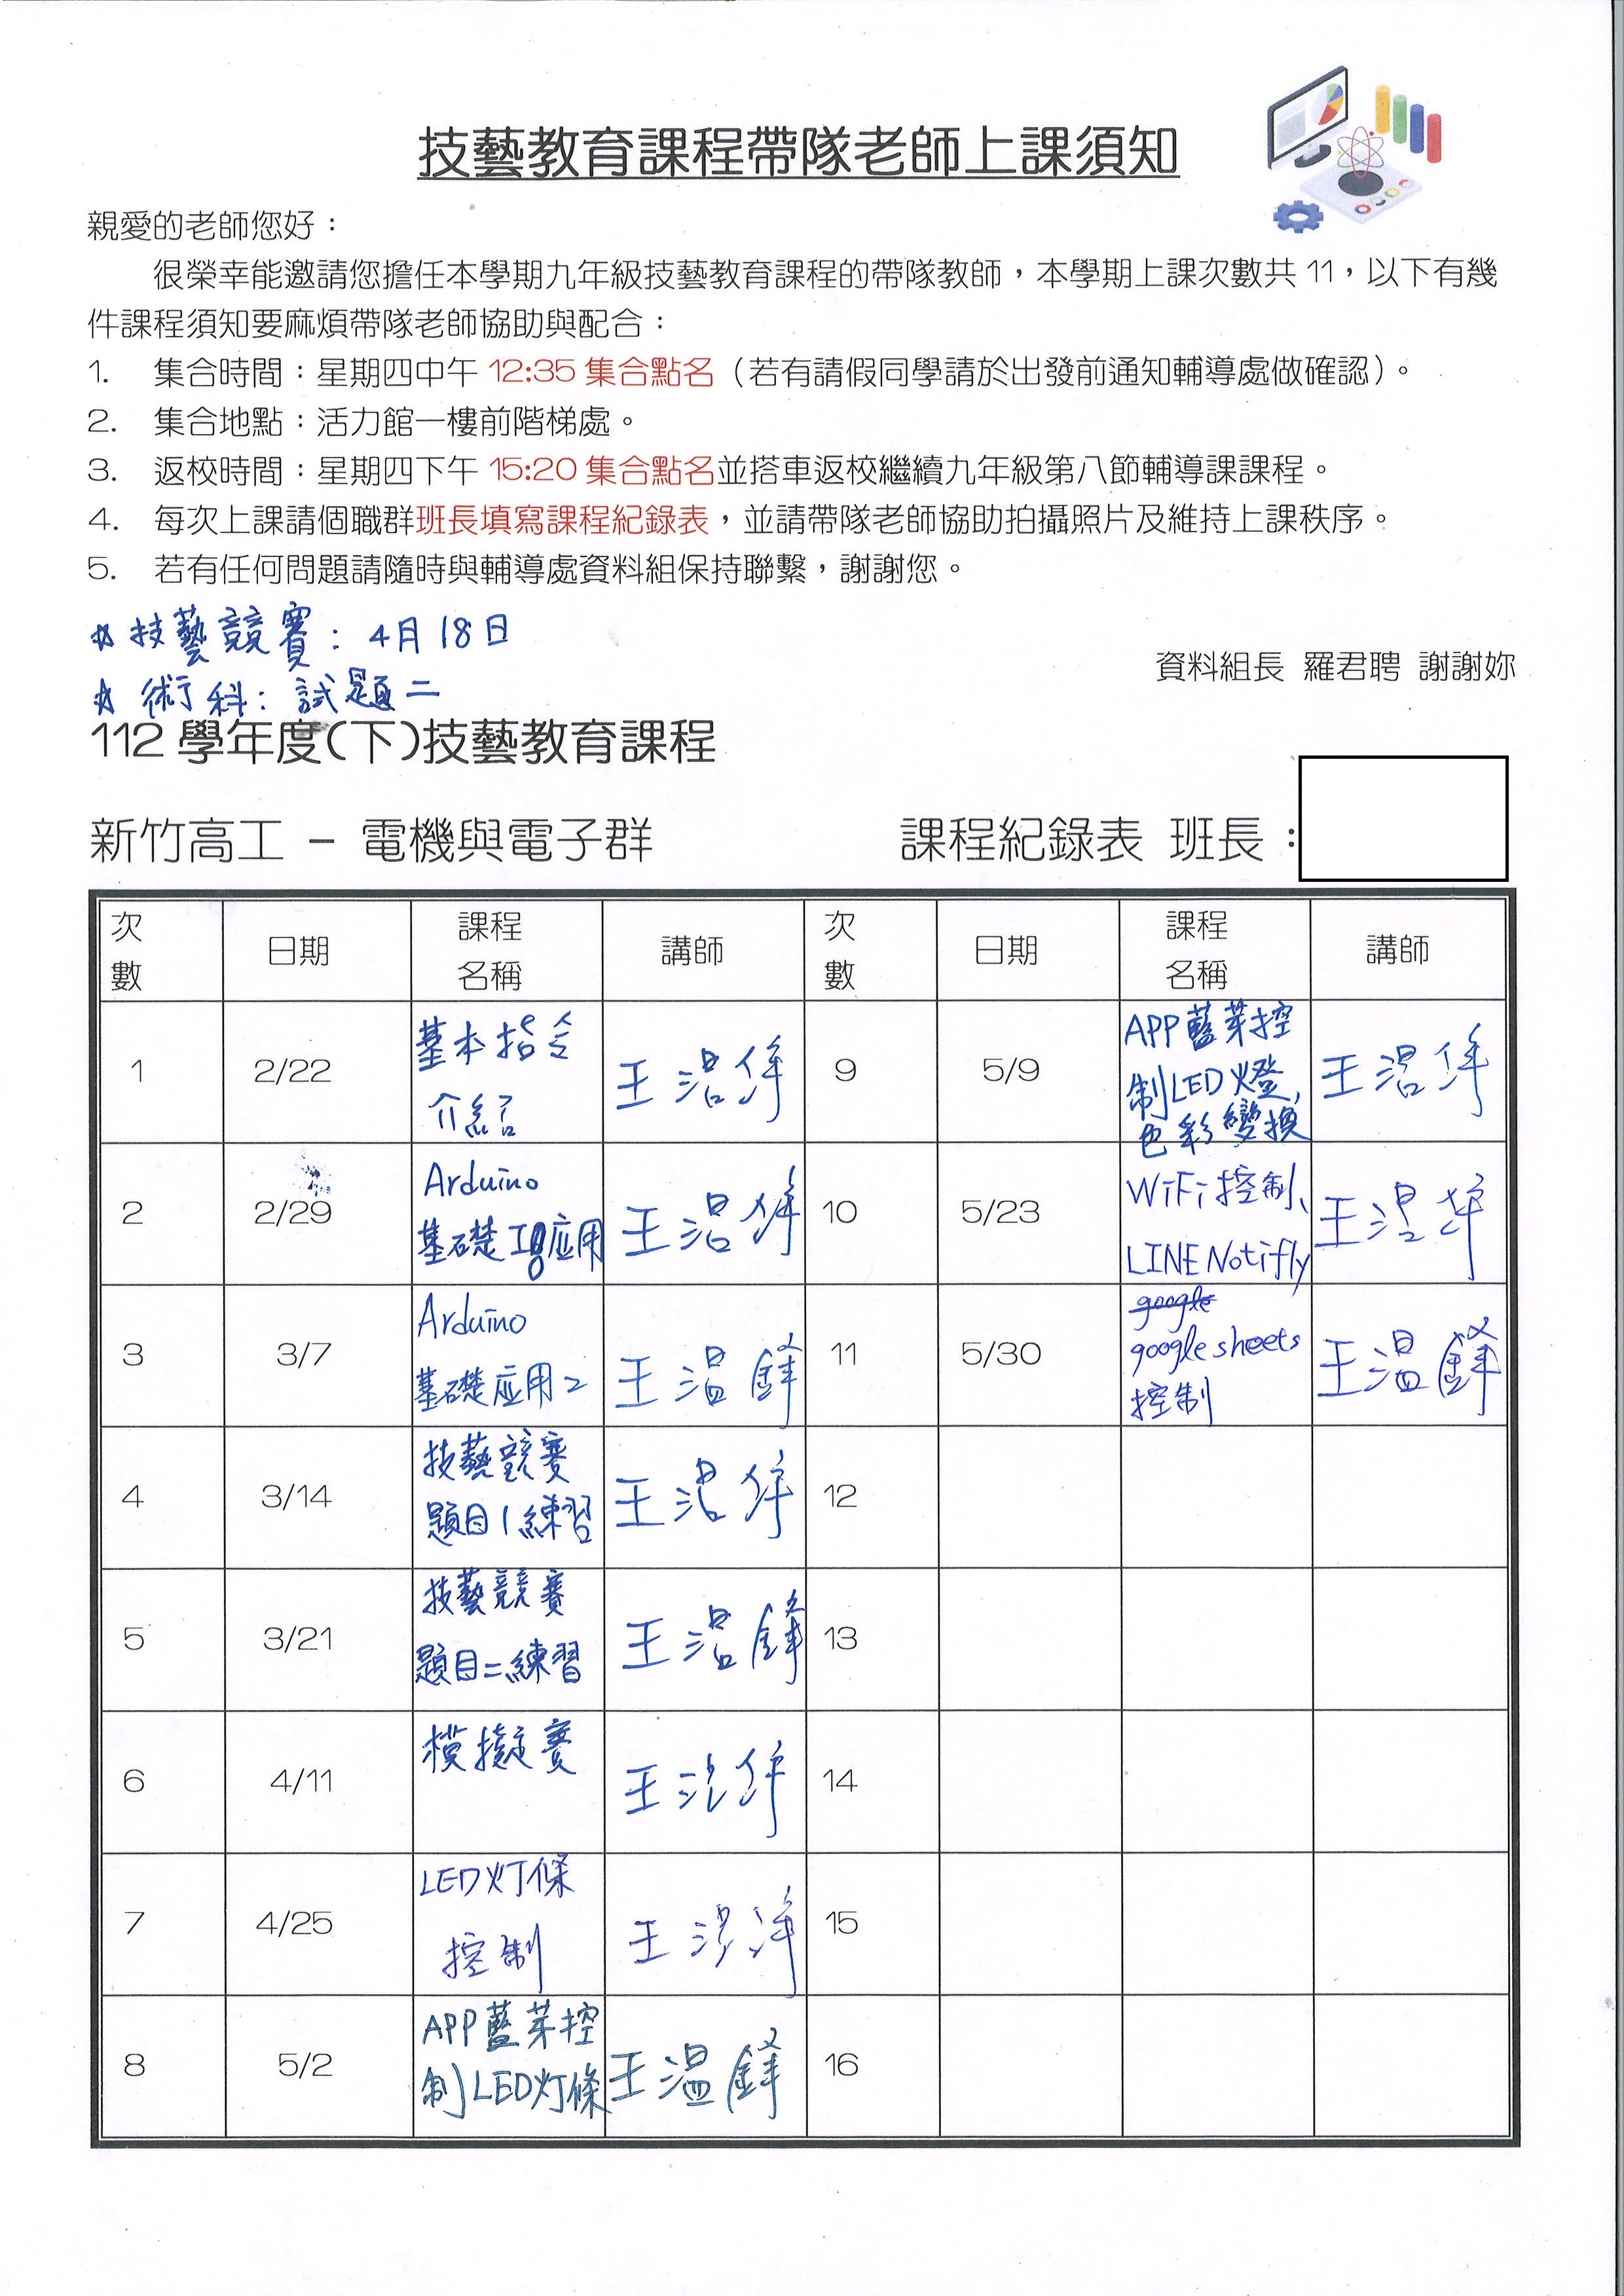 技藝教育課程帶隊老師上課須知
親愛的老師您好：
很榮幸能邀請您擔任本學期九年級技藝教育課程的帶隊教師，本學期上課次數共 11，以下有幾
件課程須知要麻煩帶隊老師協助與配合：
1. 集合時間：星期四中午 12:35 集合點名（若有請假同學請於出發前通知輔導處做確認）。
2. 集合地點：活力館一樓前階梯處。
3. 返校時間：星期四下午 15:20 集合點名並搭車返校繼續九年級第八節輔導課課程。
4. 每次上課請個職群班長填寫課程紀錄表，並請帶隊老師協助拍攝照片及維持上課秩序。
5. 若有任何問題請隨時與輔導處資料組保持聯繫，謝謝您。
☆技藝競賽：4月18日
資料組長 羅君聘 謝謝妳
☆術科：試題二
112 學年度(下)技藝教育課程
新竹高工 – 電機與電子群 課程紀錄表 班長：
次數 日期 課程名稱 講師 次數 日期 課程名稱 講師
1 2/22 基本指令
介紹 王溫鋒
9 5/9 APP藍芽控
制LED燈,
色彩變換 王溫鋒
2 2/29 Arduino
基礎應用 王溫鋒
10 5/23 WiFi控制、
LINE Notifly 王溫鋒
3 3/7 Arduino
基礎應用2 王溫鋒
11 5/30 google
google sheets
控制 王溫鋒
4 3/14 技藝競賽
題目1練習 王溫鋒 12
5 3/21 技藝競賽
題目二練習 王溫鋒 13
6 4/11 模擬賽 王溫鋒 14
7 4/25 LED灯條
控制 王溫鋒 15
8 5/2 APP藍芽控
制LED灯條 王溫鋒 16